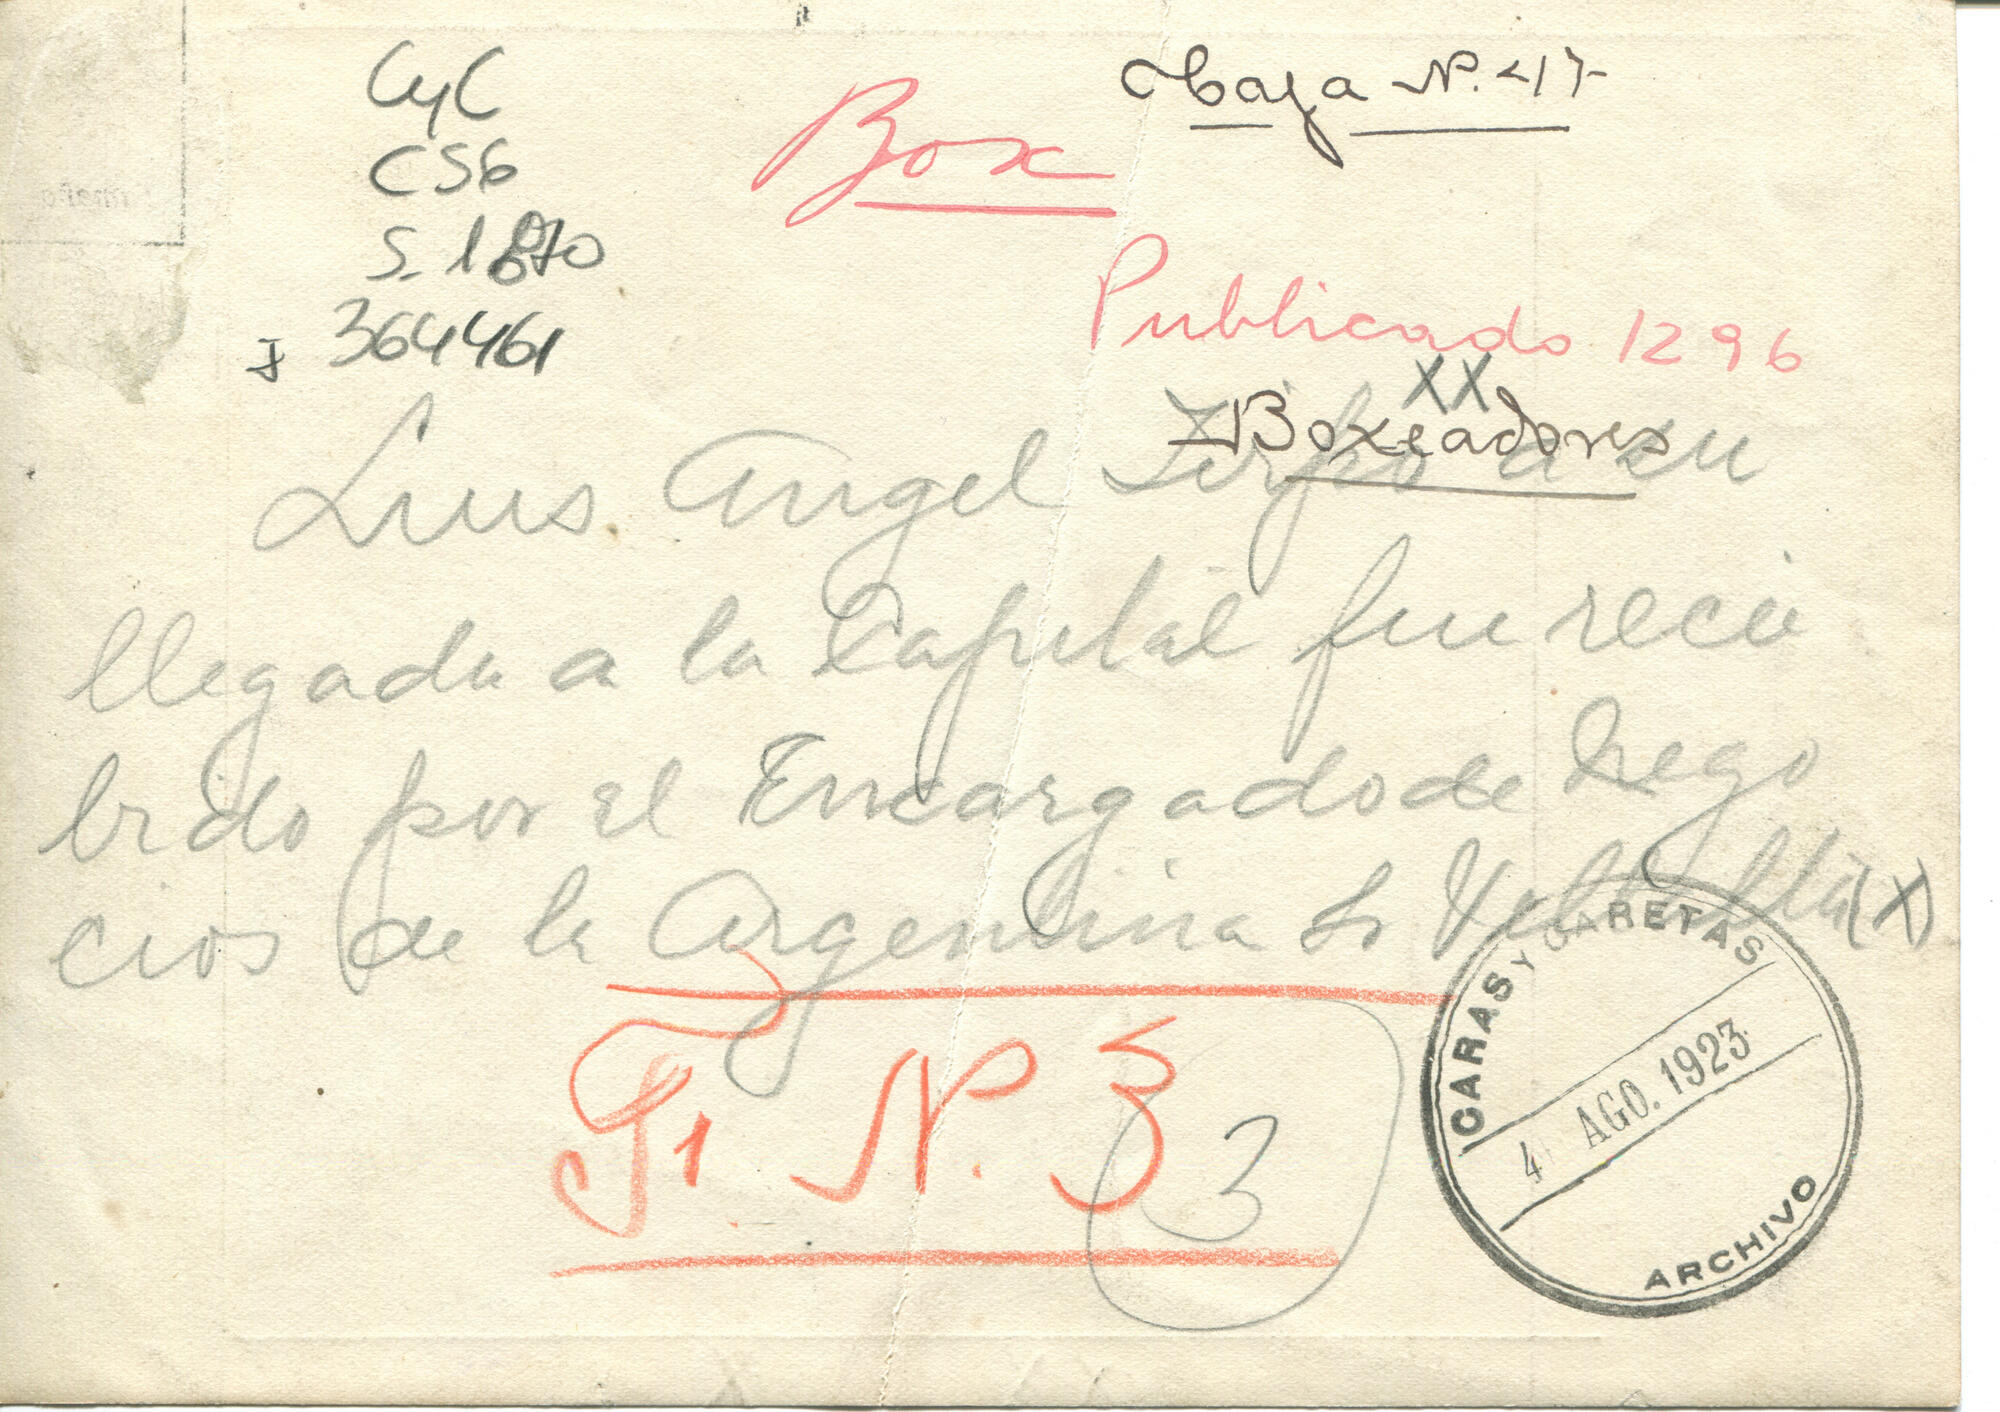 CyC
C56
S. 1870
I 364461
Box
Caja N. 417
Publicado 1296
XX
Boxeadores
Luis Angel Firpo a su
llegada a la Capital fue reci
brido por el Encargado de Nego
cios de la Argentina Sr
(X)
F. N. 3
3
CARAS Y CARETAS
4 AGO. 1923
ARCHIVO